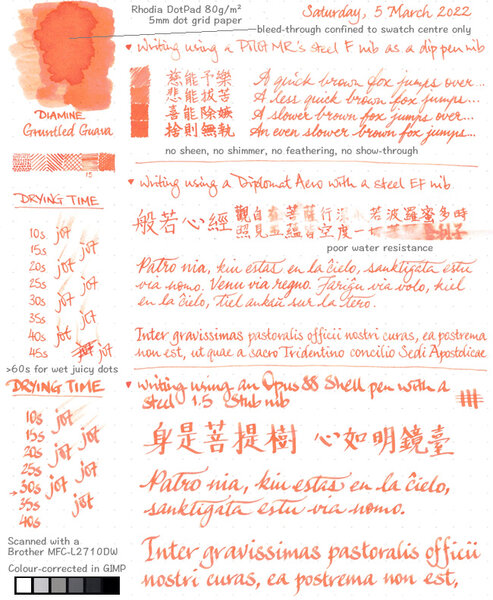 Rhodia DotPad 80g/m²
5mm dot grid paper
Saturday, 5 March 2022
bleed-through confined to swatch centre only
♥ Writing using a PILOT MR's steel F nib as a dip pen nib
慈能予樂 A quick brown fox jumps over...
悲能拔苦 A less quick brown fox jumps....
喜能除嫉 A slower brown fox jumps over...
捨則無執 An even slower brown fox jumps...
DIAMINE
Gruntled Guava
no sheen, no shimmer, no feathering, no show-through
15
♥ Writing using a Diplomat Aero with a steel EF nib
般若心經
觀自在菩薩行深 若波羅蜜多時
照見五蘊皆空度一切苦 舍利子
poor water resistance
DRYING TIME
10s jot
15s jot
20s jot
25s jot
30s jot
35s jot
40s jot
45s jot jot
>60s for wet juicy dots
Patro nia, kiu estas en la ĉielo, sanktigata estu
via nomo. Venu via regno. Fariĝu via volo, kiel
en la ĉielo, tiel ankaŭ sur la tero.
Inter gravissimas pastoralis officii nostri curas, ea postrema
non est, ut quae a sacro Tridentino concilio Sedi Apostolicae
DRYING TIME
10s jot
15s jot
20s jot
25s jot
→ 30s jot jot
35s jot
40s
♥ Writing using an Opus 88 Shell pen with a
steel 1.5 Stub nib
身是菩提樹 心如明鏡臺
Patro nia, kiu estas en la ĉielo,
sanktigata estu via nomo.
Inter gravissimas pastoralis officii
nostri curas, ea postrema non est,
Scanned with a
Brother MFC-L2710DW
Colour-corrected in GIMP